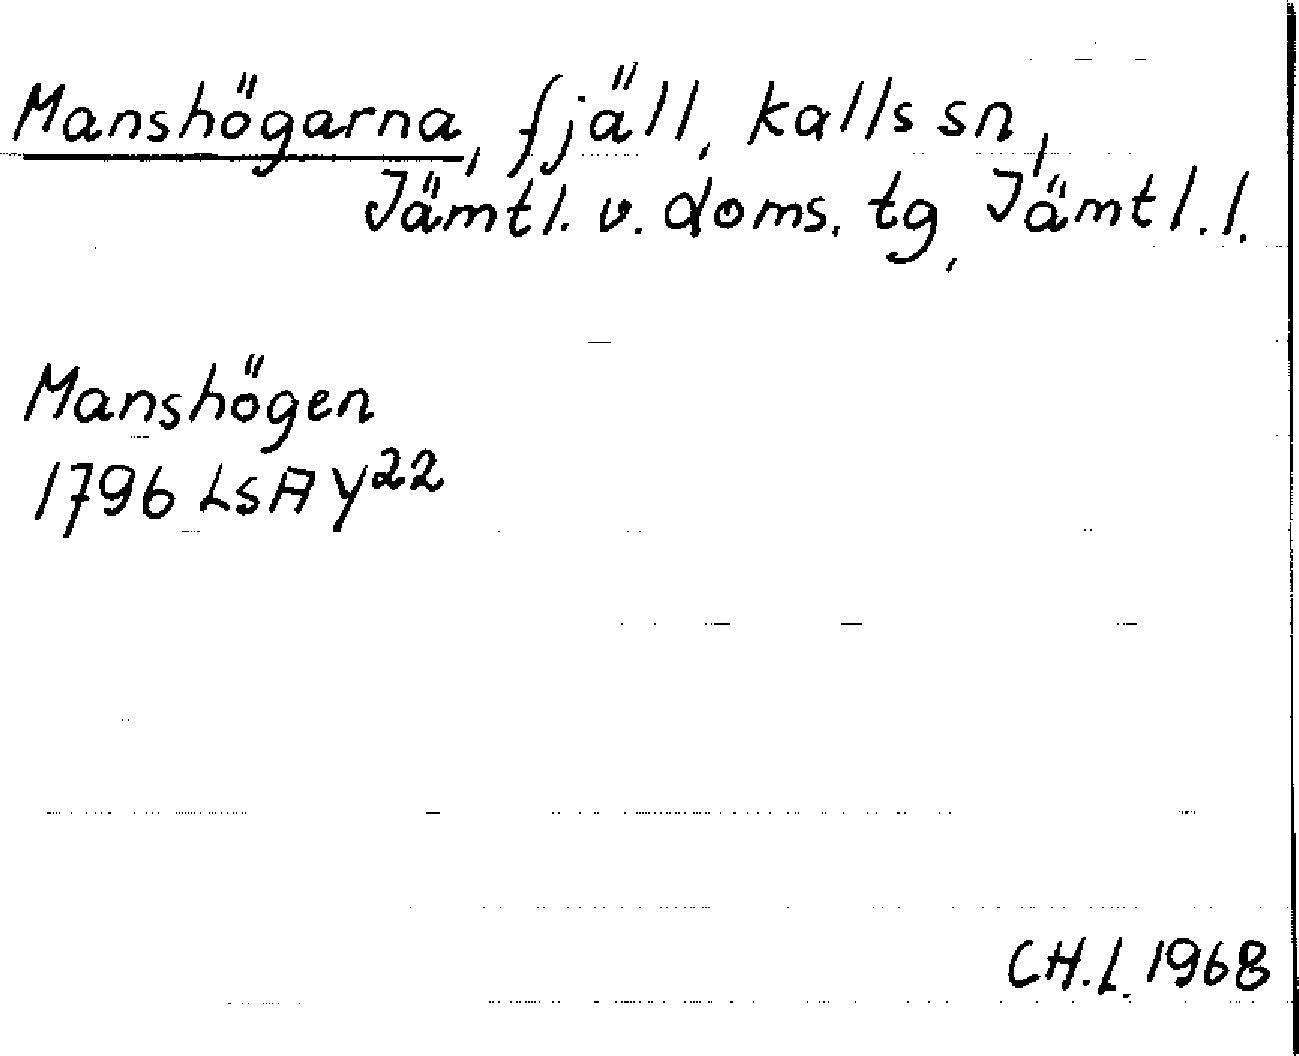 Manshögarna, fjäll, Kalls sn,
Jämtl. v. doms. tg, Jämtl. l.
Manshögen
1796 LSA Y²²
CH.L. 1968